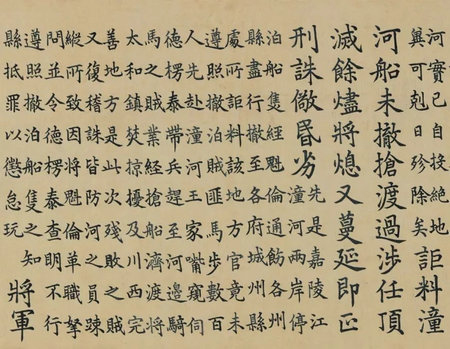 河實已自投絶地
冀可剋日殄除矣
詎料潼
河船未撤搶渡過涉任頂
滅餘燼將熄又蔓延即正
刑誅儆昬劣
先是嘉陵江
潼河兩岸停
泊船隻經魁倫通飭各州
縣盡行撤至各府城州縣
處所詎料該地方官竟未
遵照撤泊賊匪馬步數百
人先赴潼河王家嘴窺伺
德楞泰帶兵趕至河邊騎
馬之賊業經搶船濟渡將
太和鎮焚掠擾及川西完
善地方是此次殘敗之賊
又復稽誅皆防河之員踈
縱所致因將魁倫革職拏
問並令德楞泰查明不行
遵照撤泊船隻之知
縣抵罪以懲怠玩
將軍